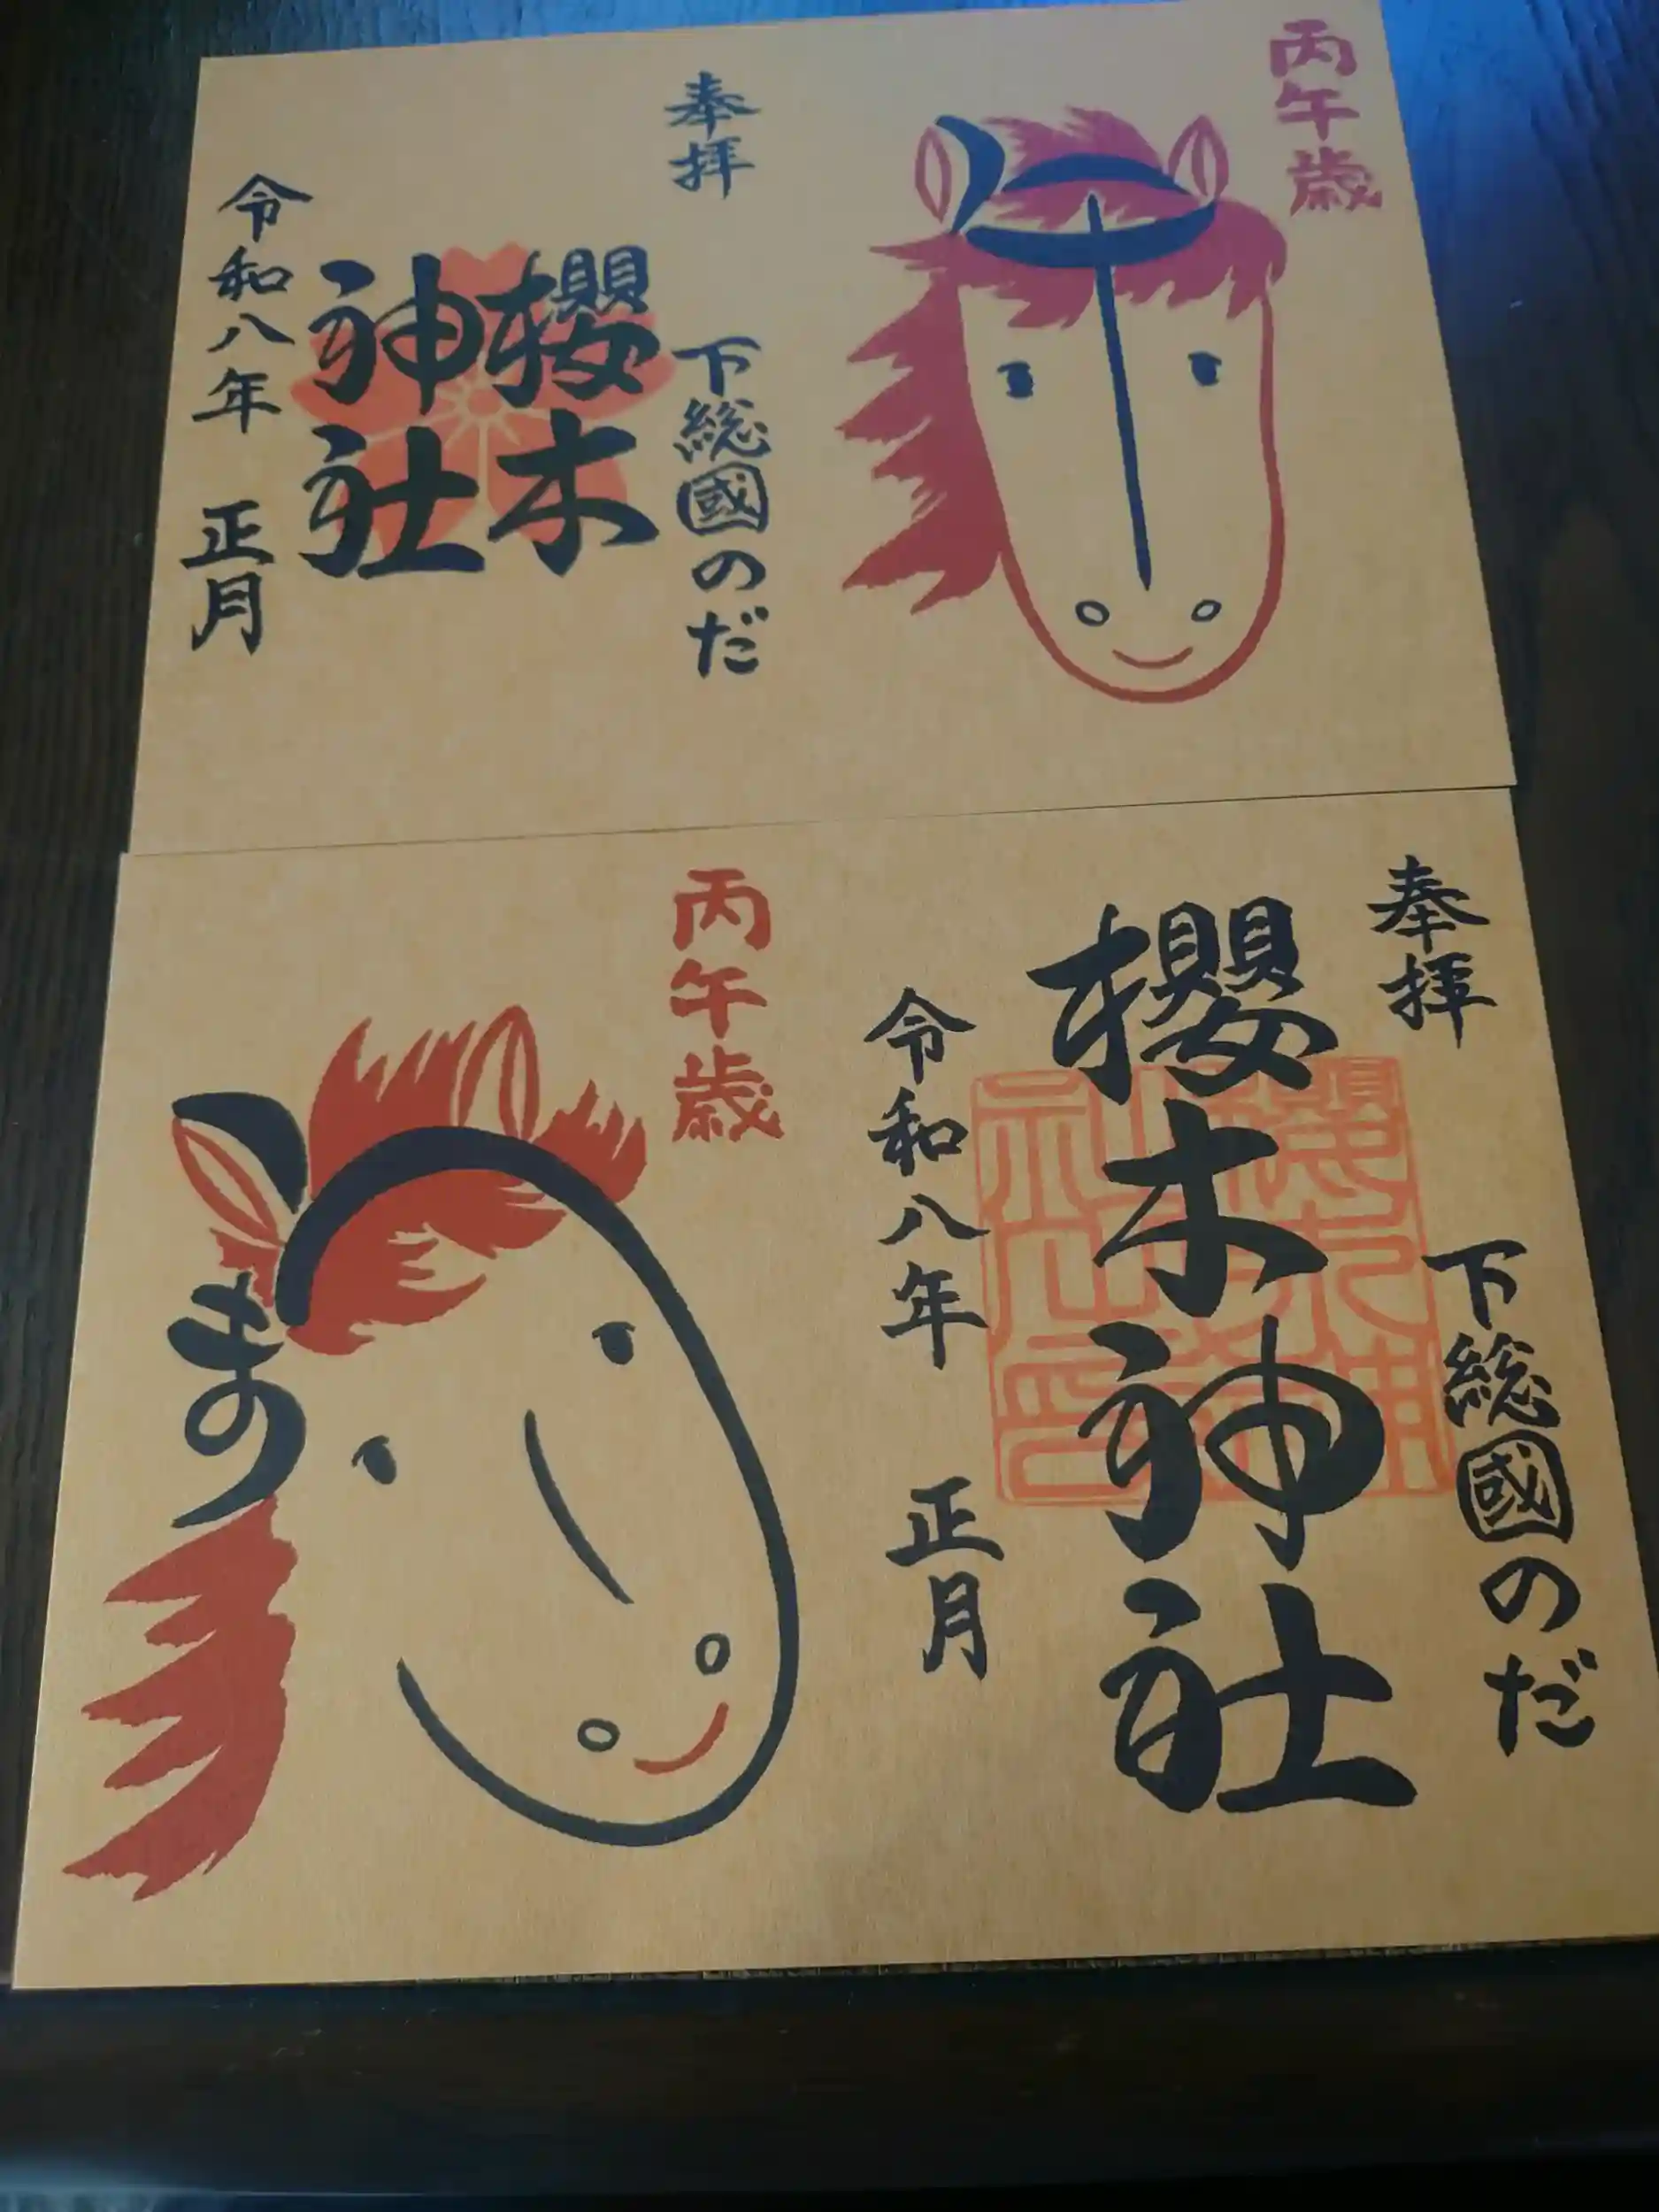 丙午歳
奉拝
下総國のだ
櫻木
神社
令和八年 正月
奉拝
下総國のだ
櫻木神社
令和八年 正月
丙午歳